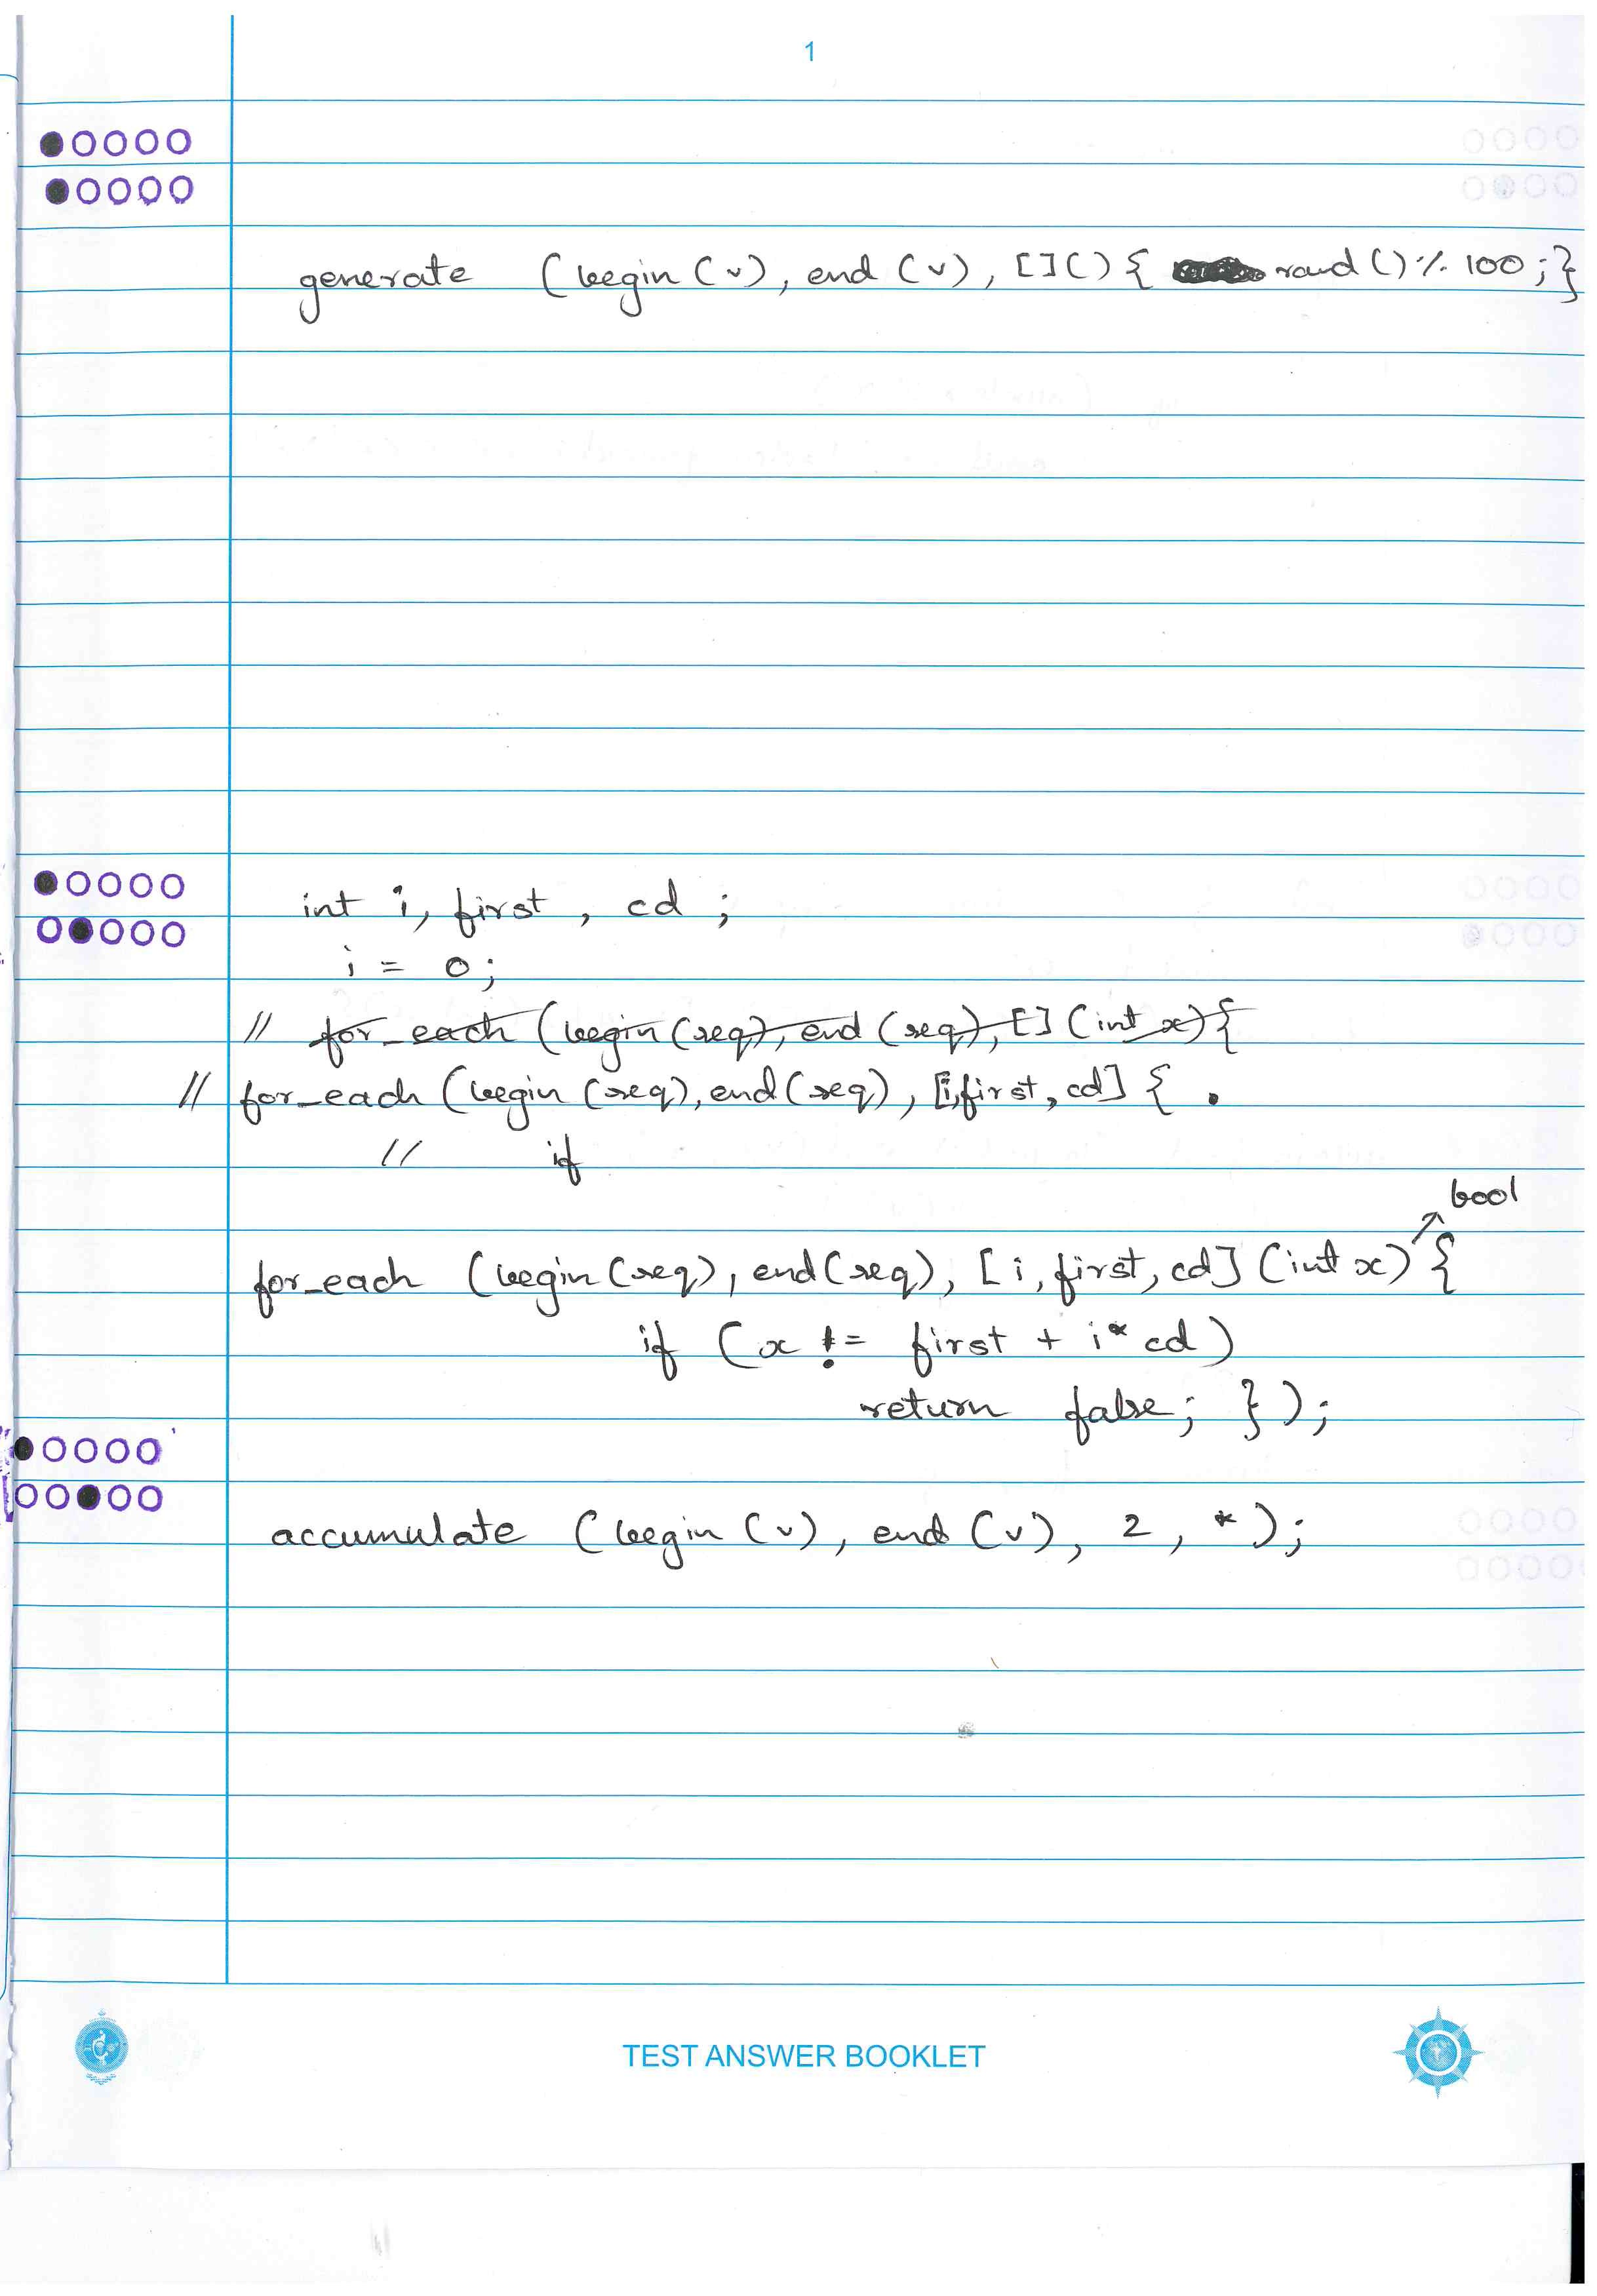 1
generate (begin(v), end(v), [](){ rand()% 100;}
int i, first, cd ;
i = 0;
// for_each (begin(seq), end(seq), [](int x){
// for_each (begin(seq), end(seq), [i,first, cd] { .
// if
bool
for_each (begin(seq), end(seq), [i, first, cd](int x) {
if (x != first + i* cd)
return false; });
accumulate (begin(v), end(v), 2, *);
TEST ANSWER BOOKLET